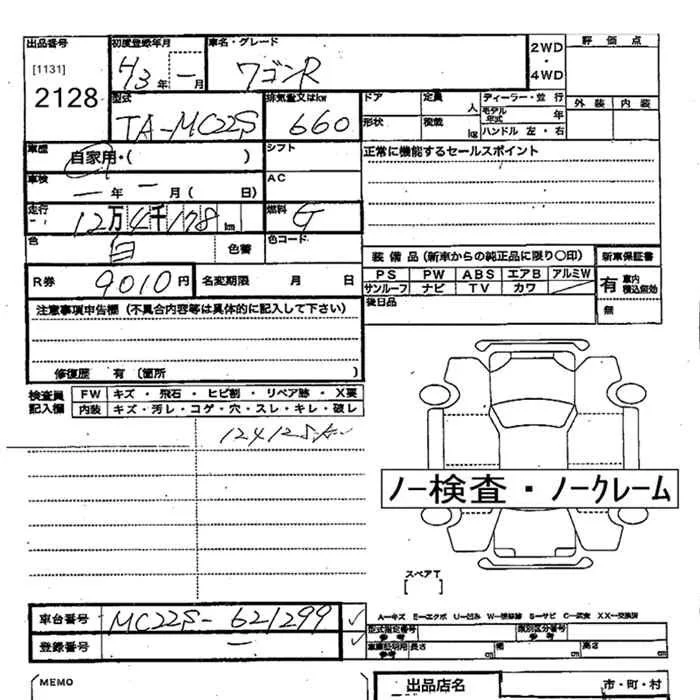 出品番号 初度登録年月 車名・グレード 2WD・4WD 評価点
[1131]
2128
H3年 一月 ワゴンR
外装 内装
型式 排気量又はkw ドア 定員 人 ディーラー・並行
TA-MC22S 660 形状 積載 kg モデル年式 年
ハンドル 左・右
車歴 シフト 正常に機能するセールスポイント
自家用・( )
車検 AC
一年 一月( 日)
走行 燃料
12万4千178km G
色 色替 色コード
白
装備品(新車からの純正品に限り○印) 新車保証書
R券 9010円 名変期限 月 日
PS PW ABS エアB アルミW 有 車内 積込無効
サンルーフ ナビ TV カワ
後日品 無
注意事項申告欄(不具合内容等は具体的に記入して下さい)
修復歴 有(箇所 )
検査員記入欄 FW キズ・飛石・ヒビ割・リペア跡・X要
内装 キズ・汚レ・コゲ・穴・スレ・キレ・破レ
ノー検査・ノークレーム
スペアT
[ ]
車台番号 MC22S-621299 ✓
A-キズ E-エクボ U-凹み W-補修跡 S-サビ C-腐食 XX-交換済
型式指定番号 参考 類別区分番号 参考
登録番号 一 ✓
車庫証明用 参考 長さ 幅 高さ
MEMO
出品店名 市・町・村